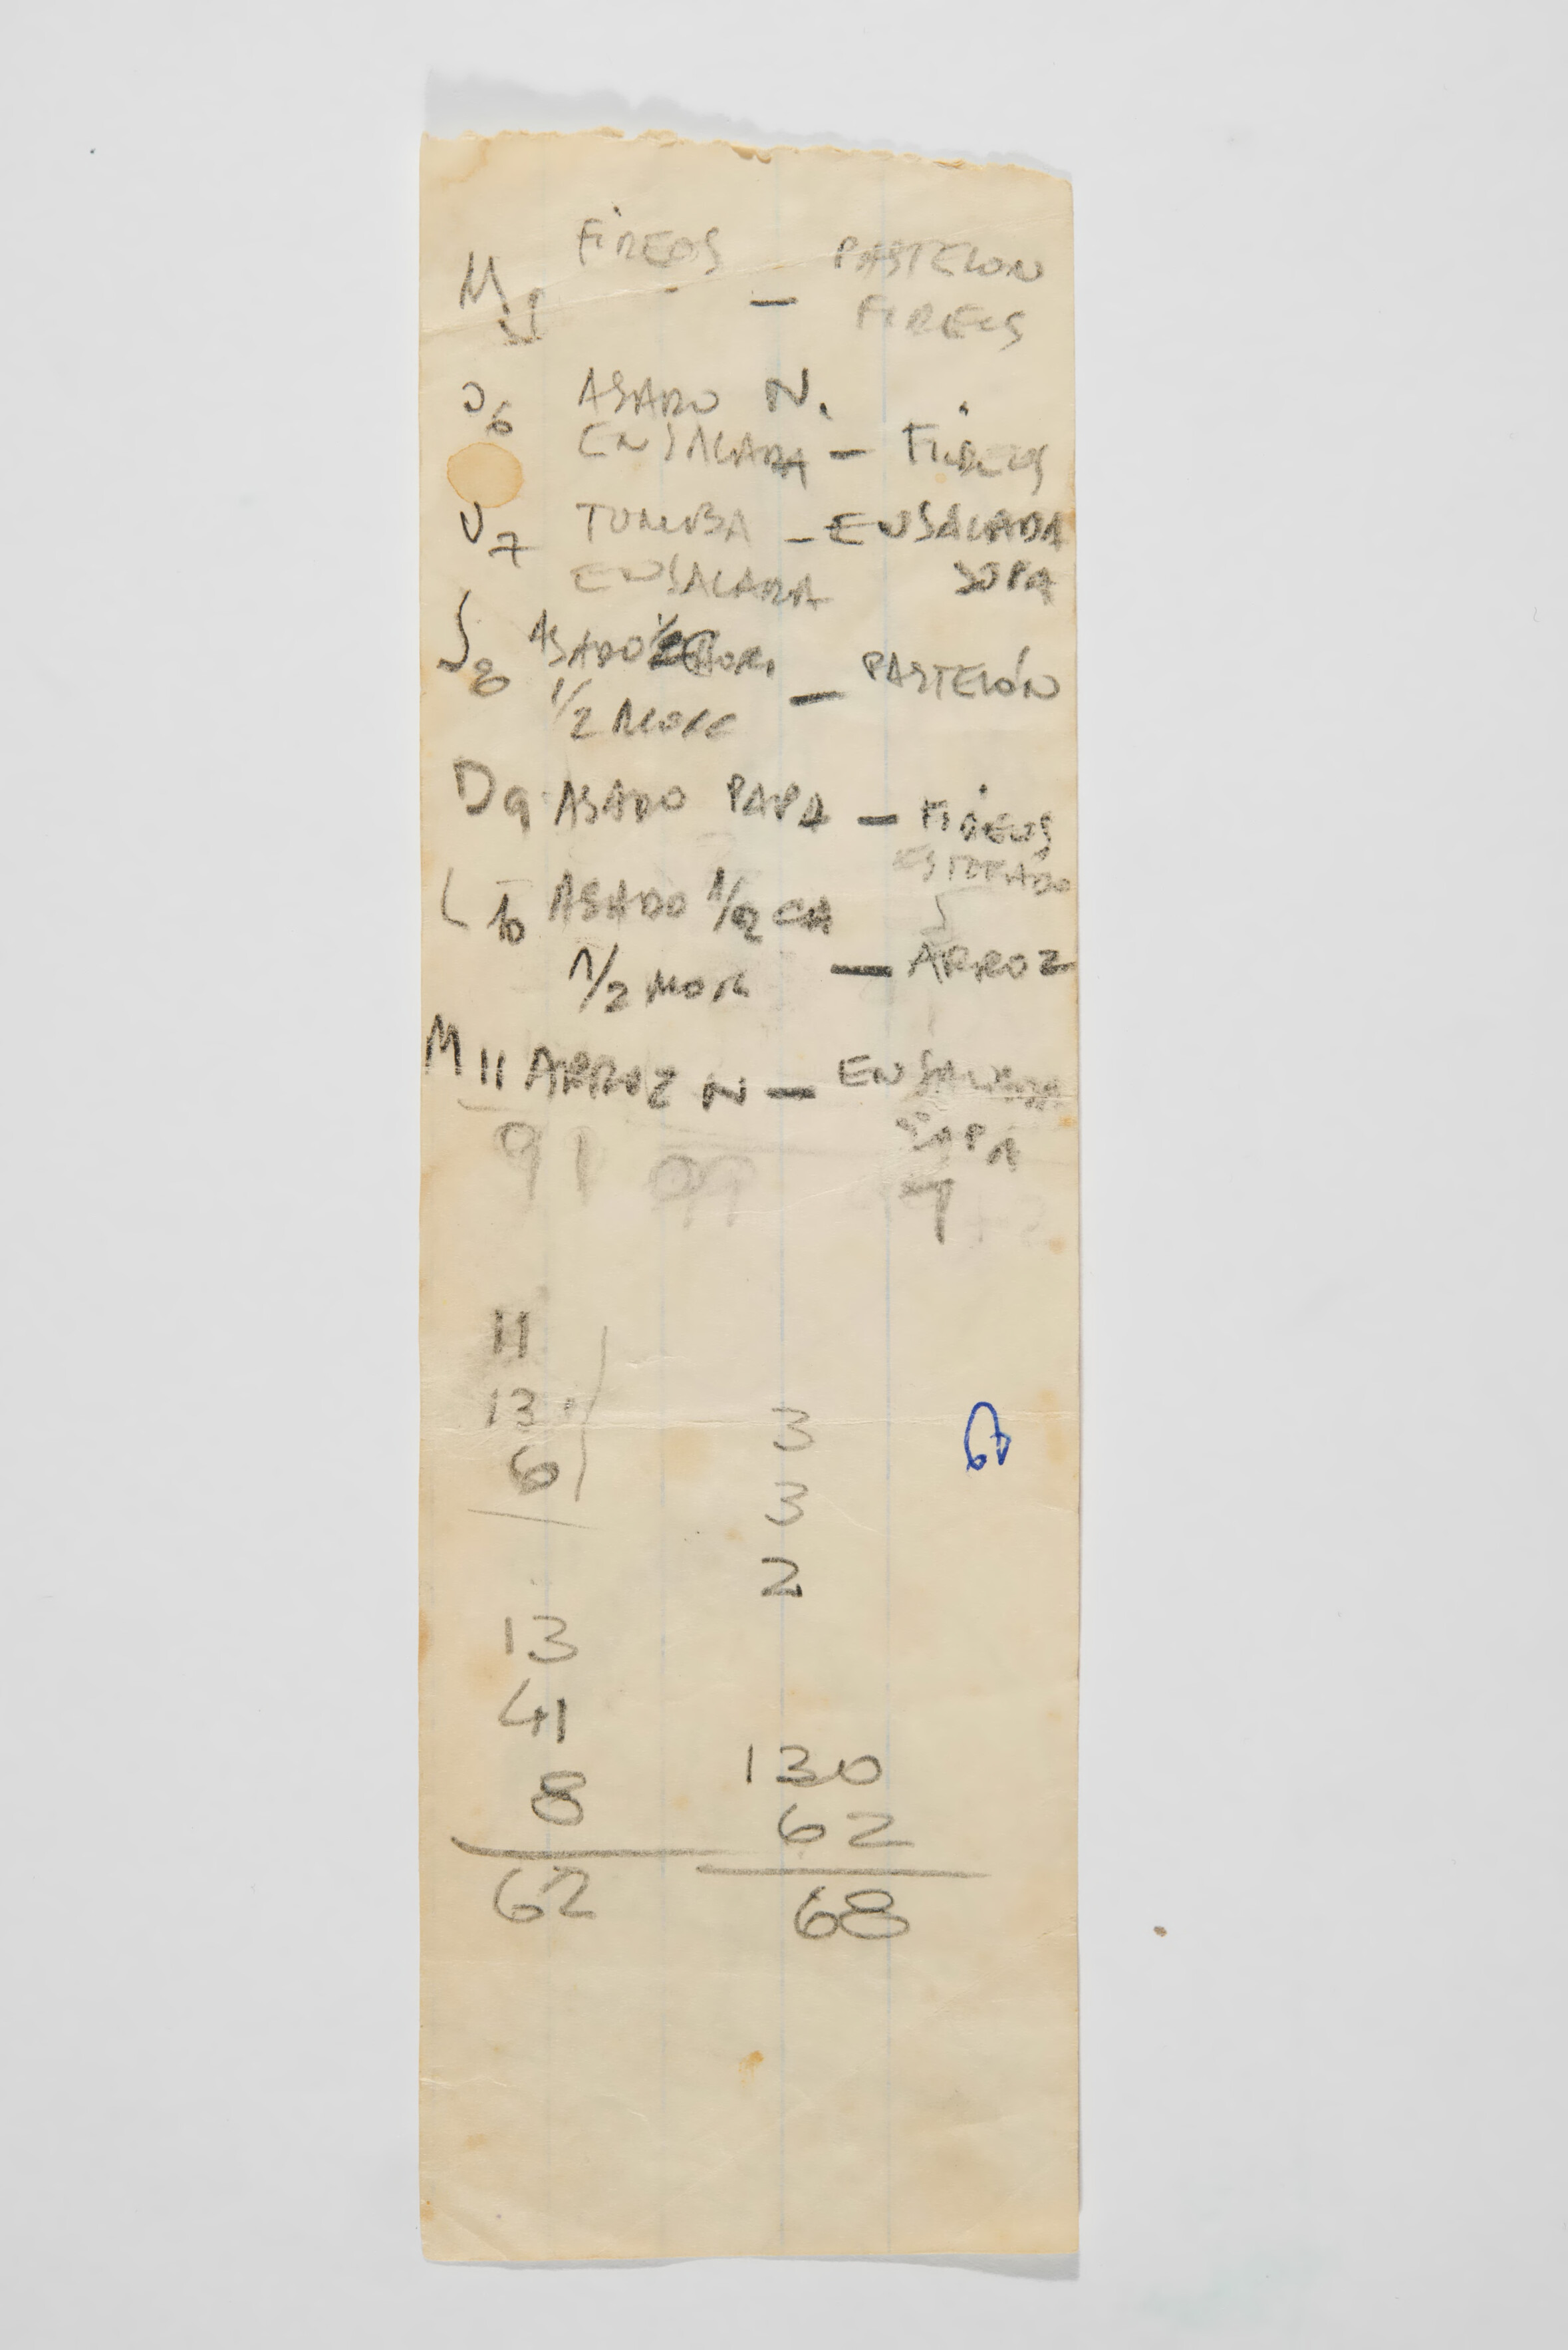 FIDEOS – PASTELON
M5 FIDEOS
J6 ASADO N.
ENSALADA – FIDEOS
V7 TUMBA – ENSALADA
ENSALADA SOPA
S8 ASADO 1/2
1/2 – PASTELÓN
D9 ASADO PAPA – FIDEOS
ESTOFADO
L10 ASADO 1/2 CA
1/2 MOR – ARROZ
M11 ARROZ N – ENSALADA
SOPA
91 99 7
11
13 3
6 3
2
13
41
8 130
62
62 68